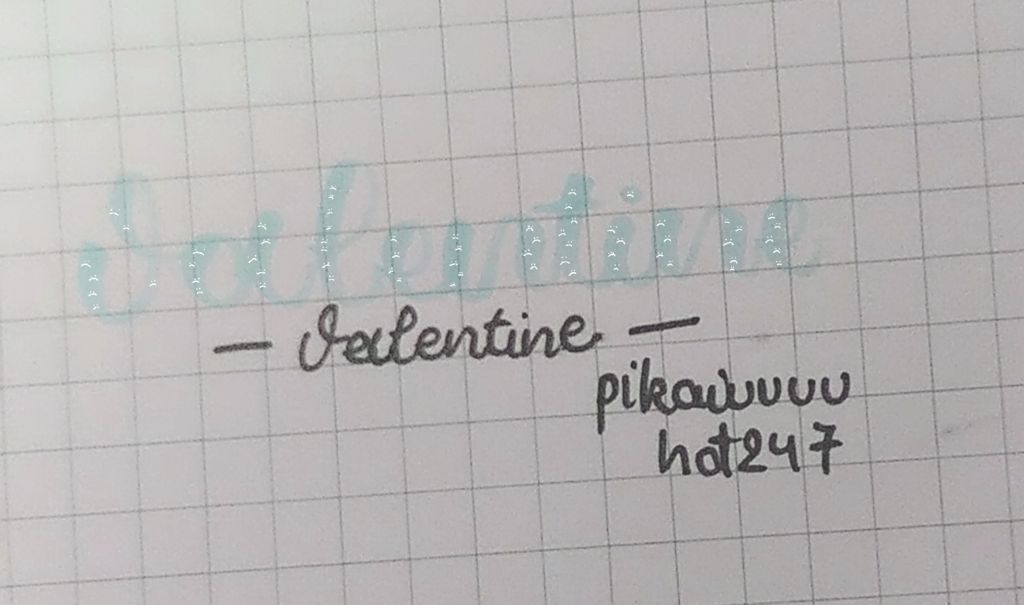 Valentine
— Valentine —
pikawuuu
hot247